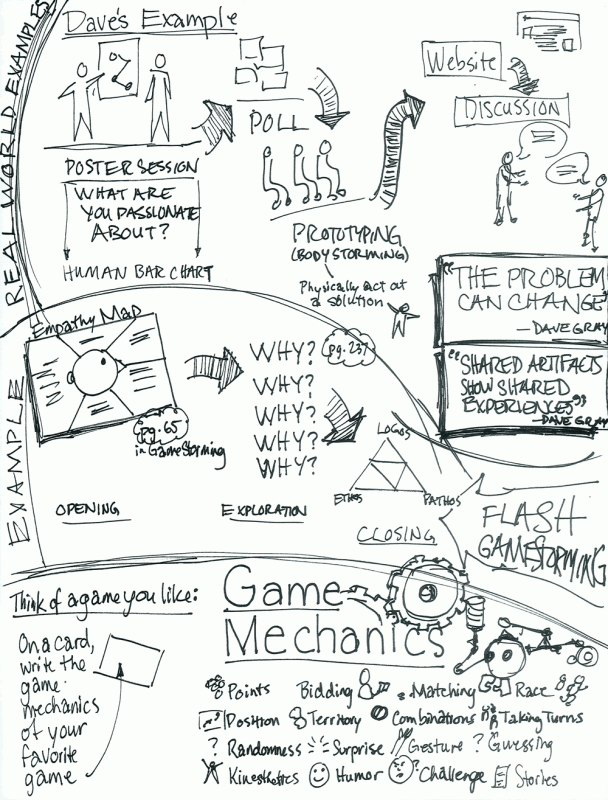 REAL WORLD EXAMPLES
Dave's Example
POSTER SESSION
WHAT ARE
YOU PASSIONATE
ABOUT?
HUMAN BAR CHART
POLL
PROTOTYPING
(BODYSTORMING)
Physically act out
a solution
Website
DISCUSSION
"THE PROBLEM
CAN CHANGE"
—DAVE GRAY
"SHARED ARTIFACTS
SHOW SHARED
EXPERIENCES"
—DAVE GRAY
EXAMPLE
Empathy Map
pg. 65
in GameStorming
OPENING
WHY?
WHY?
WHY?
WHY?
WHY?
pg. 237
EXPLORATION
LOGOS
ETHOS
PATHOS
CLOSING
FLASH
GAMESTORMING
Think of a game you like:
On a card,
write the
game
mechanics
of your
favorite
game
Game
Mechanics
Points Bidding Matching Race
Position Territory Combinations Taking Turns
? Randomness Surprise Gesture ? Guessing
Kinesthetics Humor Challenge Stories